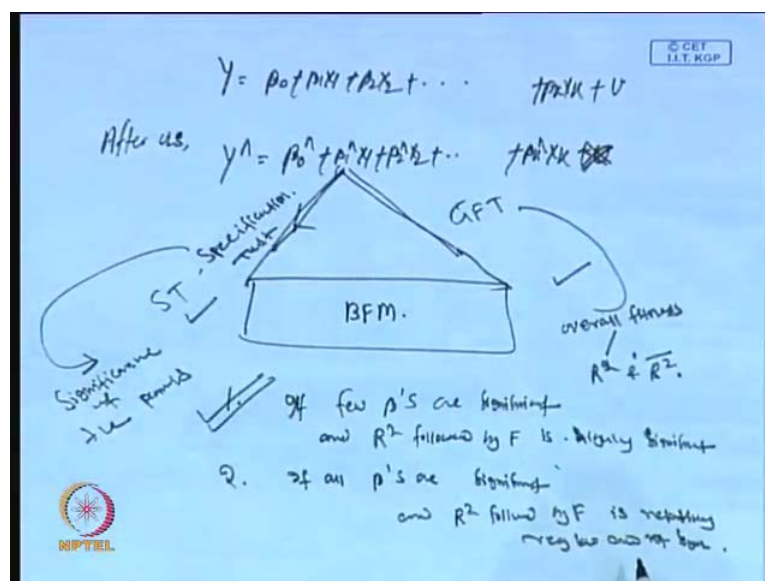 © CET
I.I.T. KGP
Y = β0 + β1X1 + β2X2 + · · · + βkXk + U
After us,
Y^ = β0^ + β1^X1 + β2^X2 + · · + βk^Xk
ST - Specification Test
GFT
BFM.
overall fitness
R² & R̅².
Significance of the
1. If few β's are significant
and R² followed by F is highly significant
2. If all β's are significant
and R² followed by F is
NPTEL